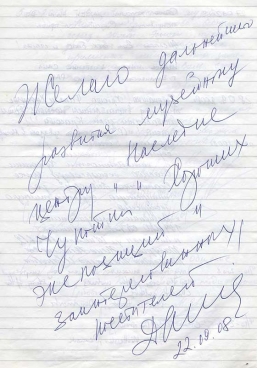 Желаю дальнейшего
развития музейному
центру "Наследие
Чукотки" Хороших
экспозиций и
заинтересованных
посетителей.
22.09.08